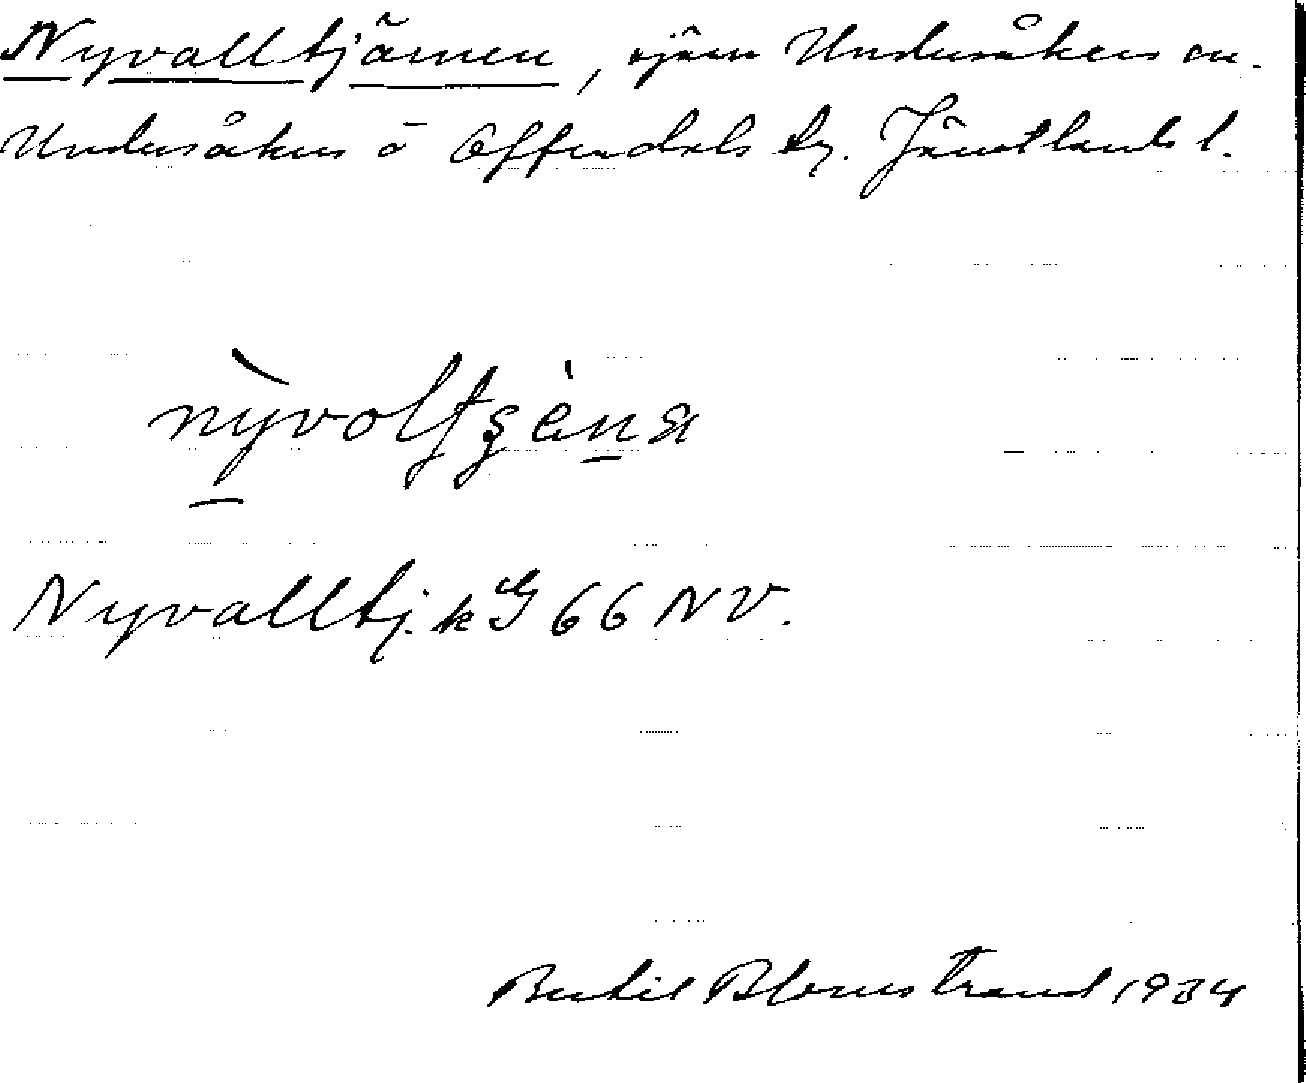 Nyvalltjärnen, tjärn Undersåkers sn.
Undersåkers o Offerdals tg. Jämtlands l.
nỳvoltʂèna
Nyvalltj. k G 66 NV.
Bertil Blomstrand 1934